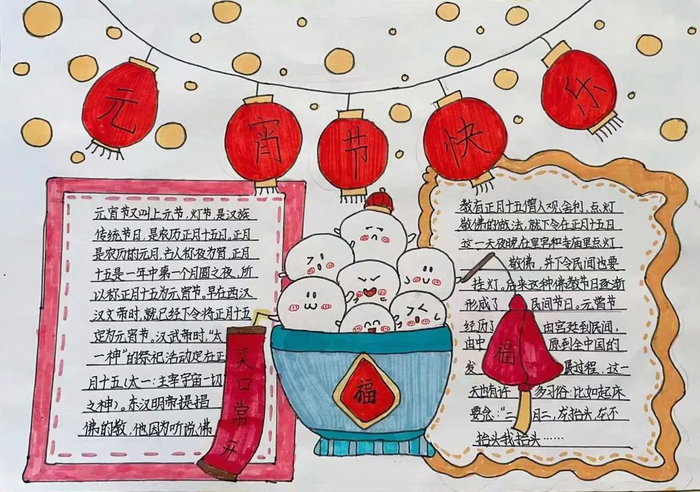 元宵节快乐
元宵节又叫上元节,灯节是汉族
传统节日,是农历正月十五日,正月
是农历的元月,古人称夜为宵,正月
十五是一年中第一个月圆之夜,所
以称正月十五为元宵节。早在西汉
汉文帝时,就已经下令将正月十五
定为元宵节。汉武帝时,"太
一神"的祭祀活动定在正
月十五(太一:主宰宇宙一切
之神)。东汉明帝提倡
佛的教,他因为听说佛
笑口常开
福
教有正月十五僧人观舍利,点灯
敬佛的做法,就下令在正月十五
这一天夜晚在皇宫和寺庙里点灯
敬佛,并下令民间也要
挂灯,后来这种佛教节日逐渐
形成了民间节日。元宵节
经历了由宫廷到民间,
由中原到全中国的
发展过程,这一
天也有许多习俗:比如起床
要念:"二月二,龙抬头,龙不
抬头我抬头……
福